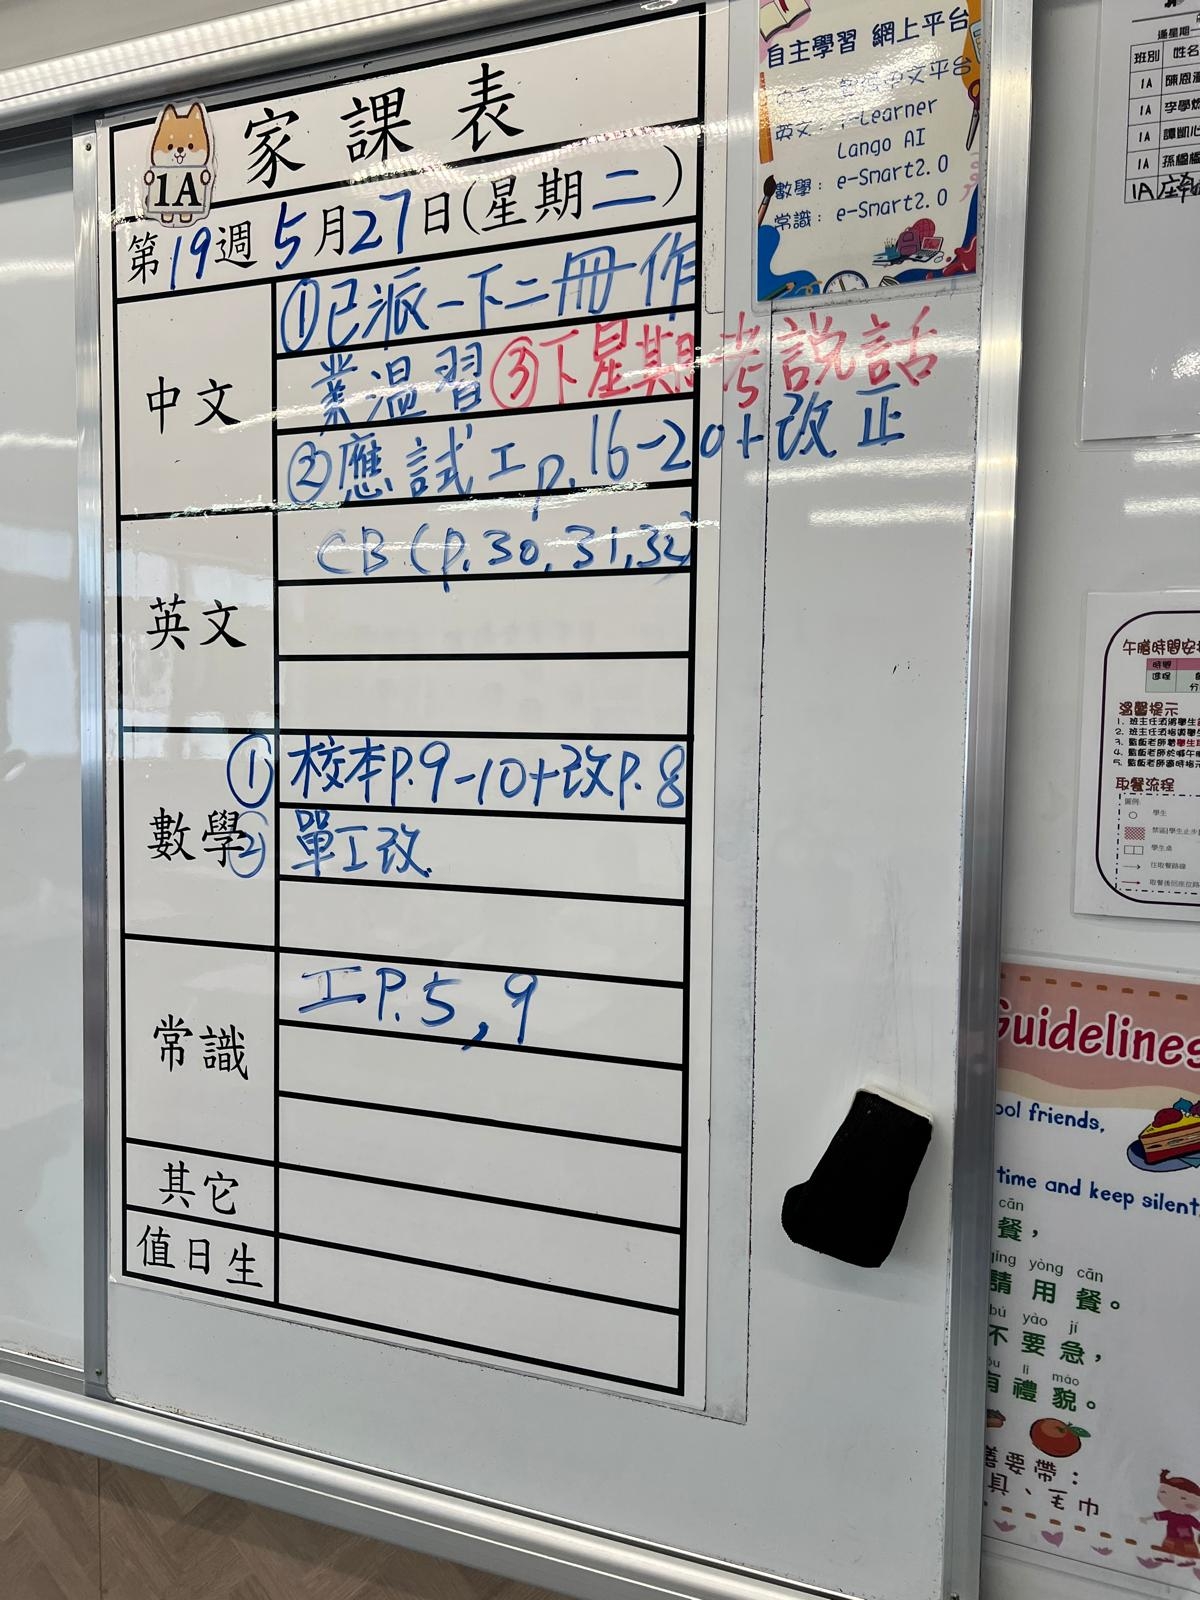 家課表
1A
第19週5月27日(星期二)
中文
①已派一下二冊作
業溫習③下星期考説話
②應試工p.16-20+改正
英文
CB(p.30,31,32)
數學
①校本p.9-10+改p.8
②單工改
常識
工P.5,9
其它
值日生
自主學習 網上平台
中文平台
英文: i-Learner
Lango AI
數學: e-Smart2.0
常識: e-Smart2.0
逢星期一
班別 姓名
1A 陳恩
1A 李學
1A 譚凱心
1A 孫
1A
午膳時間安
時間
進程
溫馨提示
1. 班主任須將學生
2. 班主任須指導學生
3. 監飯老師著學生
4. 監飯老師於
5. 監飯老師
取餐流程
圖例:
學生
禁區(學生止步
學生桌
往取餐路線
取餐後回座位路
Guidelines
ool friends,
time and keep silent
cān
餐，
qǐng yòng cān
請用餐。
bú yào jí
不要急，
ǒu lǐ mào
有禮貌。
要帶：
具、毛巾